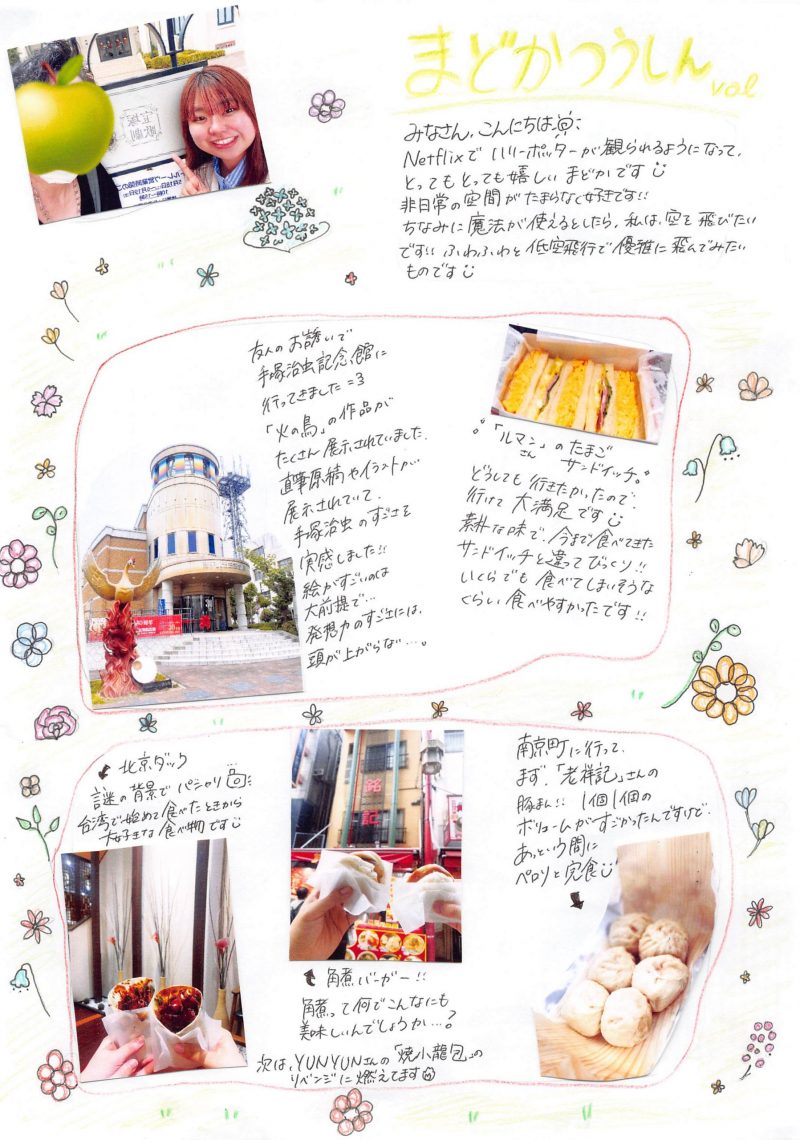 まどかつうしん vol
みなさん、こんにちは
Netflixで ハリーポッターが観られるようになって、
とってもとっても嬉しい まどかです
非日常の空間がたまらなく好きです!!
ちなみに魔法が使えるとしたら、私は、空を飛びたい
です!! ふわふわと低空飛行で優雅に飛んでみたい
ものです
友人のお誘いで
手塚治虫記念館に
行ってきました=3
「火の鳥」の作品が
たくさん展示されていました。
直筆原稿やイラストが
展示されていて、
手塚治虫のすごさを
実感しました!!
絵がすごいのは
大前提で…
発想力のすごさには、
頭が上がらない…。
「ルマン」さんのたまご
サンドイッチ。
どうしても行きたかったので、
行けて大満足です
素朴な味で、今まで食べてきた
サンドイッチと違ってびっくり!!
いくらでも食べてしまいそうな
くらい食べやすかったです!!
北京ダック
謎の背景でパシャリ
台湾で始めて食べたときから
大好きな食べ物です
銘
記
角煮バーガー!!
角煮って何でこんなにも
美味しいんでしょうか…?
次は、YUNYUNさんの「焼小龍包」の
リベンジに燃えてます
南京町に行って、
まず、「老祥記」さんの
豚まん!! 1個1個の
ボリュームがすごかったんですけど、
あっという間に
ペロリと完食